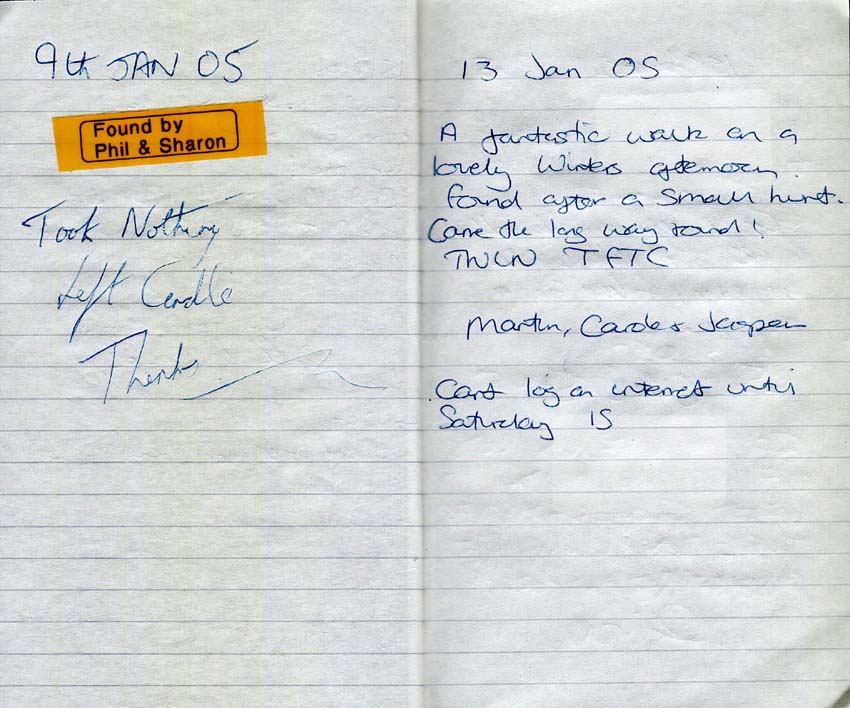 9th JAN 05
Found by
Phil & Sharon
Took Nothing
Left Candle
Thanks
13 Jan 05
A fantastic walk on a
lovely Winters afternoon.
found after a small hunt.
Came the long way round!
TNLN TFTC
Martin, Carole & Jasper
Cant log on internet until
Saturday 15